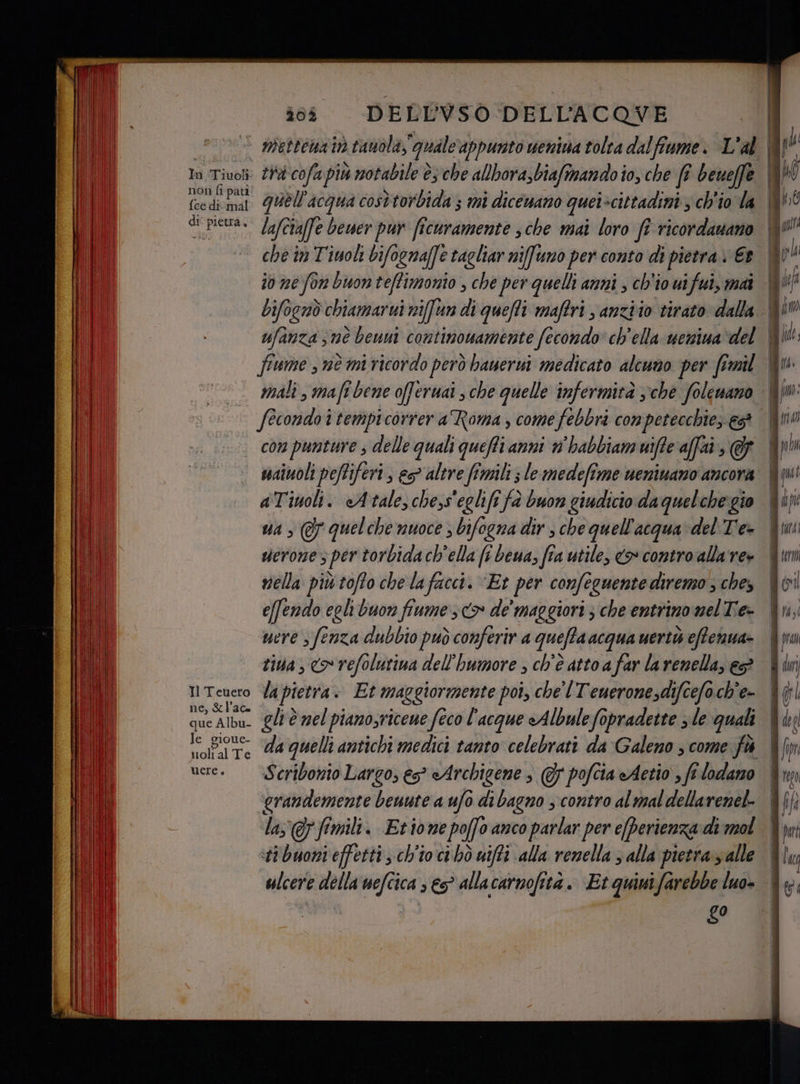 202 DELL'VSO DELL'ACQVE
metteua in tauola, quale appunto ueniua tolta dal fiume. L'al
tra cosa più notabile è, che allhora, biasmando io, che si beuesse
quell'acqua così torbida; mi diceuano quei cittadini, ch'io la
lasciasse beuer pur sicuramente, che mai loro si ricordauano
che in Tiuoli bisognasse tagliar nissuno per conto di pietra. Et
io ne son buon testimonio, che per quelli anni, ch'io ui fui, mai
bisognò chiamarui nissun di questi mastri, anzi io tirato dalla
usanza, nè beuui continouamente secondo ch'ella ueniua del
fiume, nè mi ricordo però hauerui medicato alcuno per simil
mali, ma si bene osseruai, che quelle infermità, che soleuano
secondo i tempi correr a Roma, come febbri con petecchie, et
con punture, delle quali questi anni n'habbiam uiste assai, &
uaiuoli pestiferi, et altre simili; le medesime ueniuano ancora
a Tiuoli. A tale, che, s'egli si fà buon giudicio da quel che gio
ua, & quel che nuoce, bisogna dir, che quell'acqua del Te-
uerone, per torbida ch'ella si beua, sia utile, & contro alla re-
nella più tosto che la facci. Et per conseguente diremo, che,
essendo egli buon fiume, & de' maggiori, che entrino nel Te-
uere, senza dubbio può conferir a questa acqua uertù estenua-
tiua, & resolutiua dell'humore, ch'è atto a far la renella, et
la pietra. Et maggiormente poi, che'l Teuerone, disceso ch'e-
gli è nel piano, riceue seco l'acque Albule sopradette, le quali
da quelli antichi medici tanto celebrati da Galeno, come fù
Scribonio Largo, et Archigene, & poscia Aetio, si lodano
grandemente beuute a uso di bagno, contro al mal della renel-
la, & simili. Et io ne posso anco parlar per esperienza di mol
ti buoni effetti, ch'io ci hò uisti alla renella, alla pietra, alle
ulcere della uescica, et alla carnosità. Et quiui sarebbe luo-
go
In Tiuoli
non si pati
sce di mal
di pietra.
Il Teuero
ne, & l'ac
que Albu-
le gioue-
uoli al Te
uere.